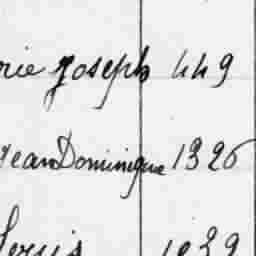 rie Joseph 449
Jean Dominique 1326
Louis 1039